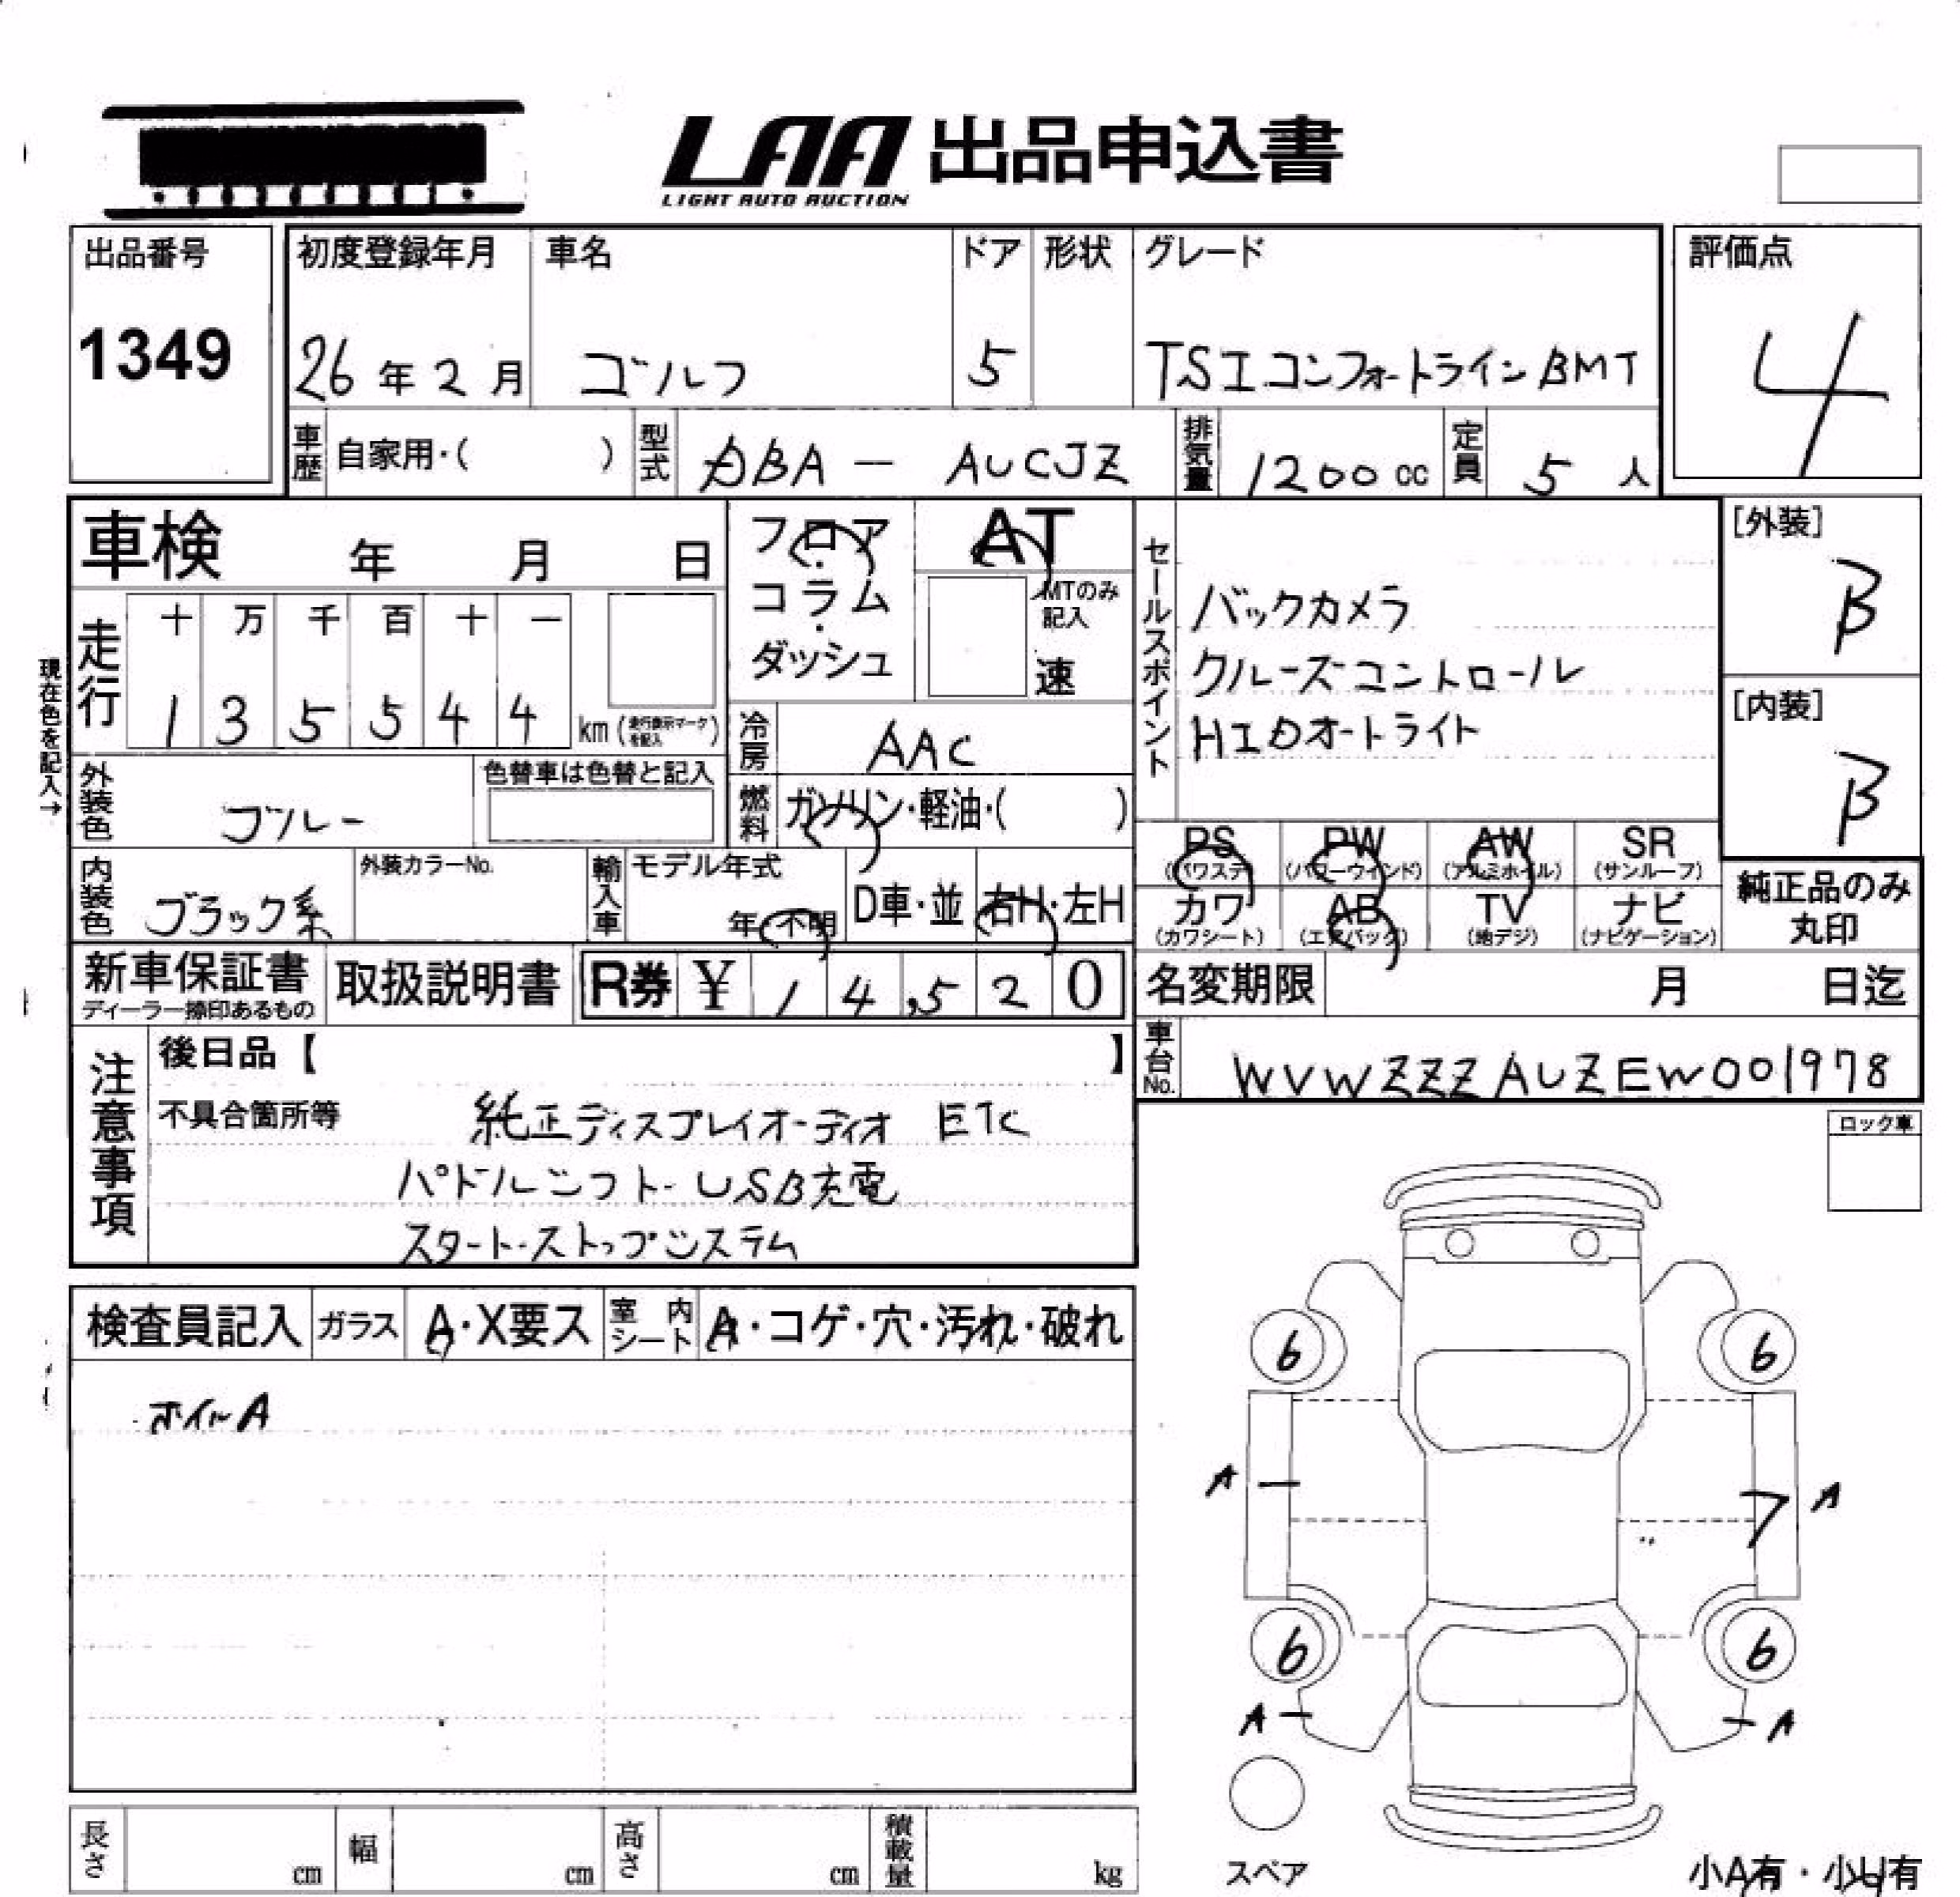 LAA 出品申込書
LIGHT AUTO AUCTION
出品番号
1349
初度登録年月
26年2月
車名
ゴルフ
ドア
5
形状
グレード
TSIコンフォートラインBMT
評価点
4
車歴 自家用・( )
型式 DBA - AUCJZ
排気量 1200cc
定員 5人
車検 年 月 日
フロア・コラム・ダッシュ
AT
MTのみ記入
速
セールスポイント
バックカメラ
クルーズコントロール
HIDオートライト
[外装]
B
[内装]
B
現在色を記入→
走行
十 万 千 百 十 一
1 3 5 5 4 4 km (走行表示マークを記入)
冷房 AAC
外装色 ブルー
色替車は色替と記入
燃料 ガソリン・軽油・( )
PS (パワステ)
PW (パワーウィンド)
AW (アルミホイル)
SR (サンルーフ)
内装色 ブラック系
外装カラーNo.
輸入車 モデル年式
年 不明
D車・並
右H・左H
カワ (カワシート)
AB (エアバッグ)
TV (地デジ)
ナビ (ナビゲーション)
純正品のみ丸印
新車保証書
ディーラー捺印あるもの
取扱説明書
R券 ¥ 1 4,5 2 0
名変期限 月 日迄
車台No. WVWZZZAUZEW001978
注意事項
後日品【 】
不具合箇所等
純正ディスプレイオーディオ ETC
パドルシフト USB充電
スタート・ストップシステム
ロック車
検査員記入
ガラス A・X要ス
室内シート A・コゲ・穴・汚れ・破れ
ホイルA
6 6
A A
6 6
A A
スペア
長さ cm
幅 cm
高さ cm
積載量 kg
小A有・小U有